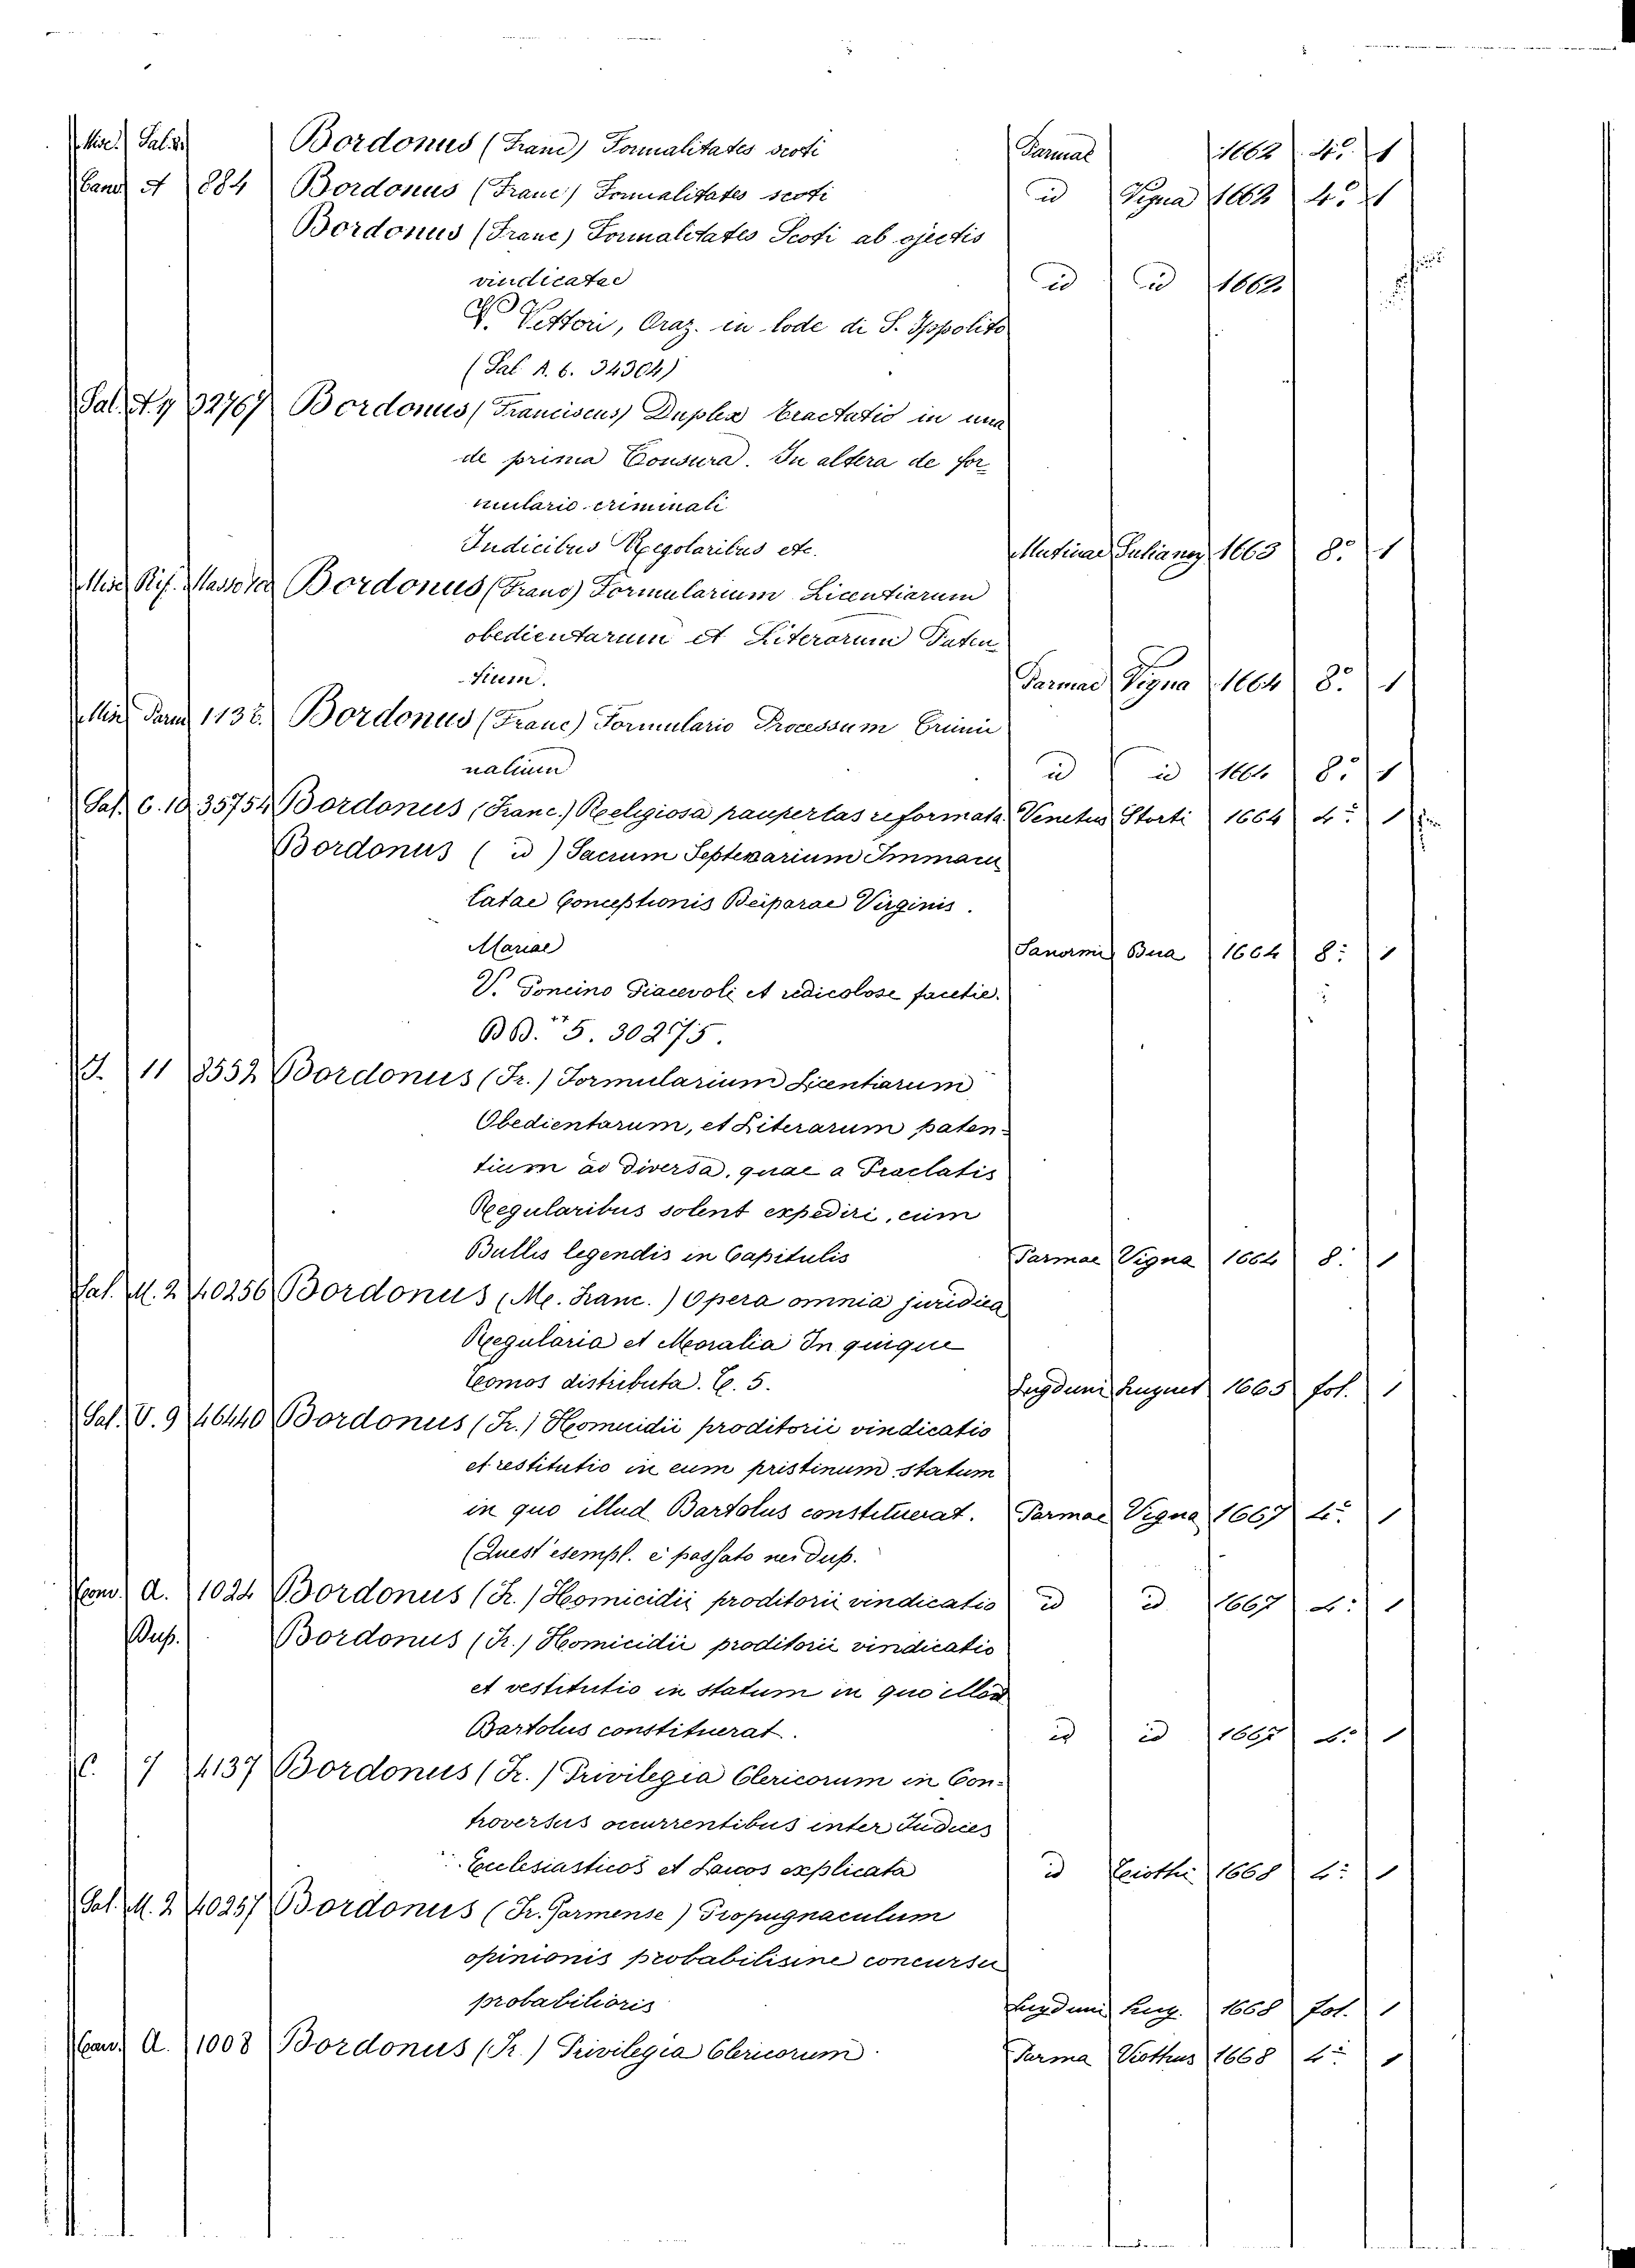 Misc. Pal. Bordonus (Franc) Formalitates scoti Parmae 1662 4.° 1
Canc A 884 Bordonus (Franc) Formalitates scoti id Vigna 1662 4.° 1
Bordonus (Franc) Formalitates Scoti ab ojectis
vindicatae id id 1662
V. Vettori, Oraz. in lode di S. Ippolito
(Sal. A. 6. 34304)
Sal. A. 7 32767 Bordonus (Franciscus) Duplex tractatio in una
de prima Tonsura. In altera de for
mulario criminali
Indicibus Regolaribus etc. Mutinae Sulianoz 1663 8.° 1
Misc Rif. Bordonus (Franc) Formularium Licentiarum
obedientarum et Literarum Paten
tium. Parmae Vigna 1664 8.° 1
Min Parm 1132. Bordonus (Franc) Formulario Processum Crimi
nalium id id 1664 8.° 1
Sal. C. 10 35754 Bordonus (Franc.) Religiosa paupertas reformata Venetus Storti 1664 4.° 1
Bordonus (id) Sacrum Septenarium Immacu
latae Conceptionis Beiparae Virginis.
Mariae Panormi Bua 1664 8: 1
V. Poncino Piacevoli et redicolose facetie.
BB. 5. 30275.
J. 11 8552 Bordonus (Fr.) Formularium Licentiarum
Obedientarum, et Literarum paten-
tium ad diversa, quae a Praelatis
Regularibus solent expediri, cum
Bullis legendis in Capitulis Parmae Vigna 1664 8. 1
Sal. M. 2 40256 Bordonus (M. Franc.) Opera omnia juridica
Regularia et Moralia In quique
Tomos distributa. T. 5. Lugduni Huguet 1665 fol. 1
Sal. V. 9 46440 Bordonus (Fr.) Homicidii proditorii vindicatio
et restitutio in eum pristinum statum
in quo illud Bartolus constituerat. Parmae Vigna 1667 4.° 1
(Quest'esempl. è passato nei dup.
Conv. A. 1024 Bordonus (Fr.) Homicidii proditorii vindicatio id id 1667 4: 1
Dup. Bordonus (Fr.) Homicidii proditorii vindicatio
et restitutio in statum in quo illod
Bartolus constituerat. id id 1667 4.° 1
C. 7 4137 Bordonus (Fr.) Privilegia Clericorum in Con-
troversus occurrentibus inter Judices
Ecclesiasticos et Laicos explicata id 1668 4: 1
Sal. M. 2 40257 Bordonus (Fr. Parmense) Propugnaculum
opinionis probabilis in e concursu
probabilioris Lugduni Hug. 1668 fol. 1
Canc. A. 1008 Bordonus (Fr.) Privilegia Clericorum Parma Viothus 1668 4.° 1